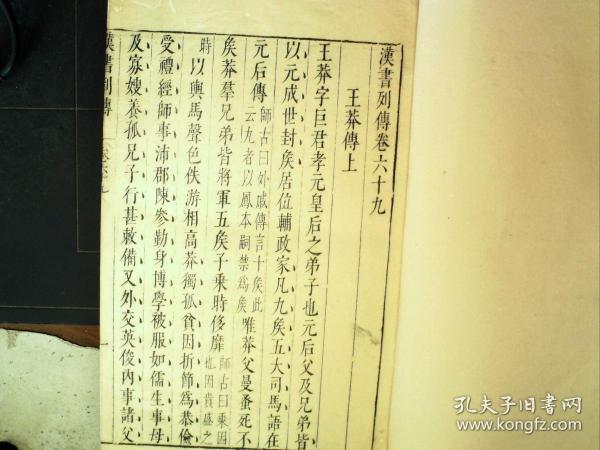 漢書列傳卷六十九
王莽傳上
王莽字巨君孝元皇后之弟子也元后父及兄弟皆
以元成世封矦居位輔政家凡九矦五大司馬語在
元后傳師古曰外戚傳言十矦此云九者以鳳本嗣禁爲矦唯莽父曼蚤死不
矦莽羣兄弟皆將軍五矦子乘時侈靡師古曰乘因也因貴盛之
時以輿馬聲色佚游相高莽獨孤貧因折節爲恭儉
受禮經師事沛郡陳參勤身博學被服如儒生事母
及寡嫂養孤兄子行甚敕備又外交英俊內事諸父
漢書列傳
卷六十九
孔夫子旧书网
www.kongfz.com